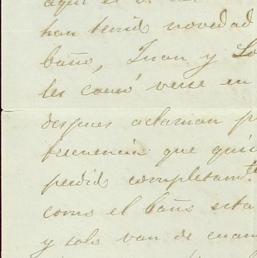 aqui el
han tenido novedad
baño, Juan y
les causó verse en
despues aclaman p
frecuencia que qui
perdido completamte
como el baño esta
y solo van de cuan